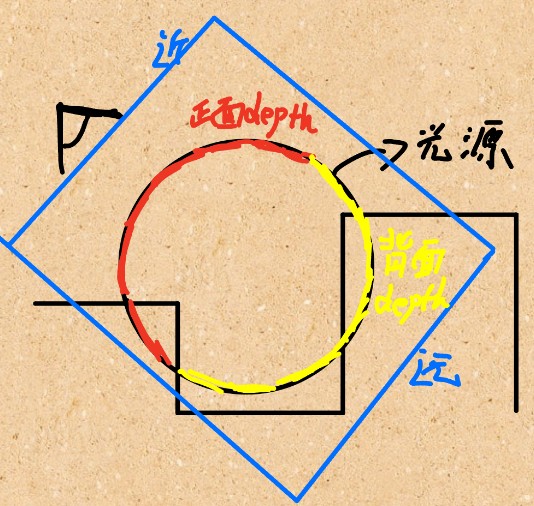 近
正面depth
光源
背面
depth
远